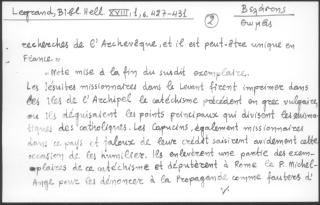 Legrand, Bibl Hell XVIII, 1, 6. 427-431
②
Besdrons
recherches de l'Archevêque, et il est peut-être unique en
France."
"Note mise à la fin du susdit exemplaire.
Les Jésuites missionnaires dans le Levant firent imprimer dans
les Iles de l'Archipel le catéchisme précédent en grec vulgaire,
où ils déguisaient les points principaux qui divisent les schisma-
tiques des catholiques. Les Capucins, également missionnaires
dans ce pays et jaloux de leur crédit saisirent avidement cette
occasion de les humilier. Ils enlevèrent une partie des exem-
plaires de ce catéchisme et députèrent à Rome le P. Michel-
Ange pour les dénoncer à la Propagande comme fauteurs d'